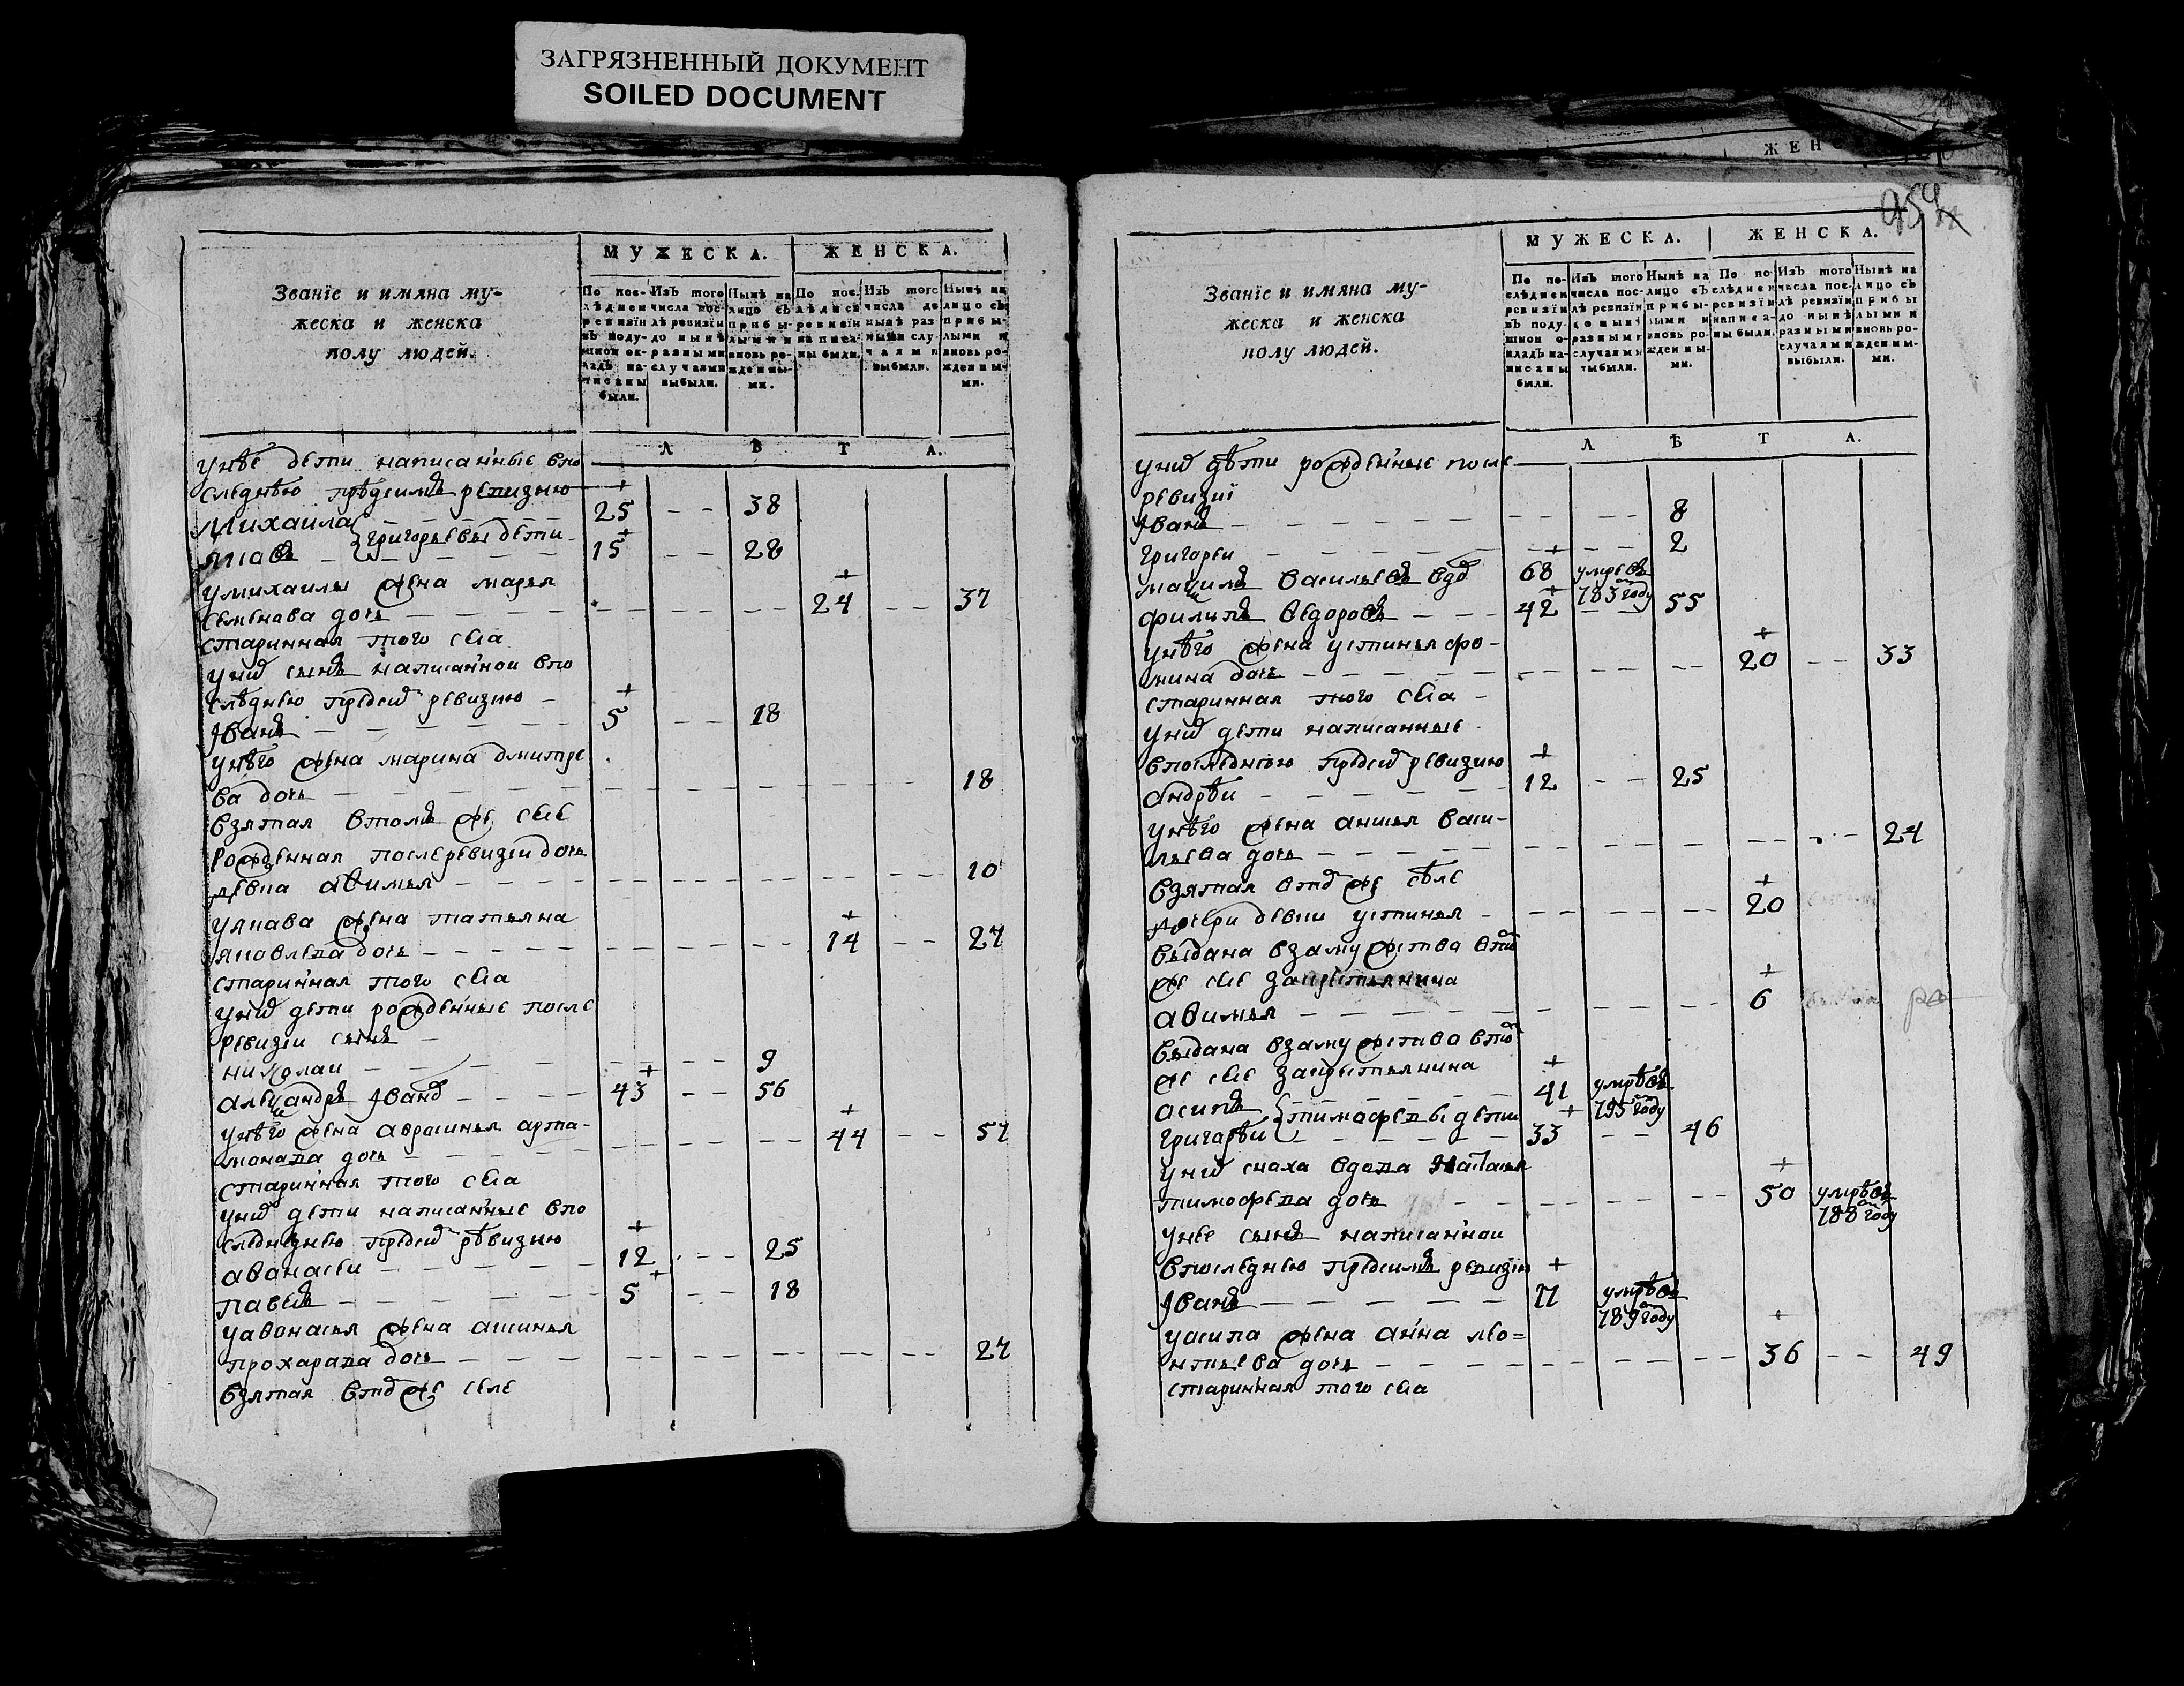 ЗАГРЯЗНЕННЫЙ ДОКУМЕНТ
SOILED DOCUMENT
ЖЕНС
954
Званїе и имяна му-
жеска и женска
полу людей.
МУЖЕСКА.
ЖЕНСКА.
По пос-
лѣдней
ревизїи
въ поду-
шной ок-
ладъ на-
писаны
были.
Изъ того
числа пос-
лѣ ревизїи
до нынѣ
разными
случаями
выбыли.
Нынѣ на
лицо съ
прибы-
лыми и
вновь ро-
жденны-
ми.
По пос-
лѣдней
ревизїи
написа-
ны были.
Изъ того
числа до
нынѣ раз
ными слу-
чаями
выбыли.
Нынѣ на
лицо съ
прибы-
лыми и
вновь ро-
жденны-
ми.
ЛѢТА.
унѣе дети написанные впо
следнею предсимъ ревизию
Михаила 25 38
григорьевы дети
15 28
умихаилы жена марья
семенова дочь 24 37
старинная того села
уних сынъ написанной впо
слѣднею предсим ревизию
Iванъ 5 18
унѣго жена марина дмитре
ва дочь 18
взятая втомъ же селе
рожденная послеревизеи дочь
девка авимья 10
жена татьяна
яковлева дочь 14 27
старинная того села
уних дети рожденные после
ревизеи сынъ
николаи 9
александръ Iванов 43 56
унѣго жена авросинья арта-
монава дочь 44 57
старинная того села
уних дети написанные впо
следнею предсим рѣвизию
авонасеи 12 25
павелъ 5 18
уавонасья жена аксинья
прохарава дочь 27
взятая втом же селе
Званїе и имяна му-
жеска и женска
полу людей.
МУЖЕСКА.
ЖЕНСКА.
По по-
слѣдней
ревизїи
въ поду-
шной о-
кладъ на-
писаны
были.
Изъ того
числа пос-
лѣ ревизїи
до нынѣ
разными
случаями
выбыли.
Нынѣ на
лицо съ
прибы-
лыми и
вновь ро-
жденны-
ми.
По по-
слѣдней
ревизїи
написа-
ны были.
Изъ того
числа пос-
лѣ ревизїи
до нынѣ
разными
случаями
выбыли.
Нынѣ на
лицо съ
прибы
лыми и
вновь ро-
жденны-
ми.
ЛѢТА.
уних дѣти рожденные после
ревизиї
Iванъ 8
григореи 2
максимъ васильевъ вдов 68 умревъ
783 году
филипъ ѳедоровъ 42 55
унѣго жена устинья фо-
мина дочь 20 33
старинная того села
уних дети написанные
впоследнюю предсим ревизию
андрѣи 12 25
унѣго жена анисья васи-
льева дочь 24
взятая втом же сѣле
дочери девки устинья 20
выдана взамужство втом
же селе закрестьянина
авимья 6
выдана взамужство втом
же селе закрестьянина
асипъ 41 умрѣвъ
795 году
тимофѣевы дети
григорѣи 33 46
уних сноха вдова Наталья
тимофева дочь 50 умрѣвъ
788 году
унее сынъ написанной
впоследнею предсимъ ревизию
Iванъ 11 умрѣвъ
789 году
уасипа жена анна лео=
нтьева дочь 36 49
старинная того села